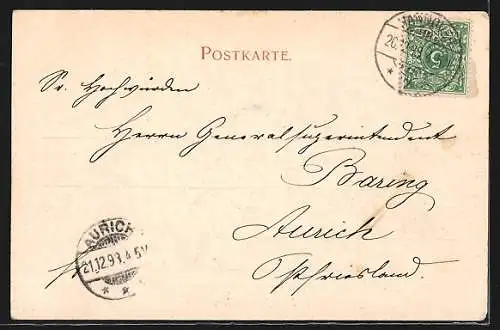 POSTKARTE.
Sr. Hochwürden
Herrn Generalsuperintendent
Baring
Aurich
Ostfriesland.
HANNOVER
5
AURICH
21.12.98. 4-5V
* *